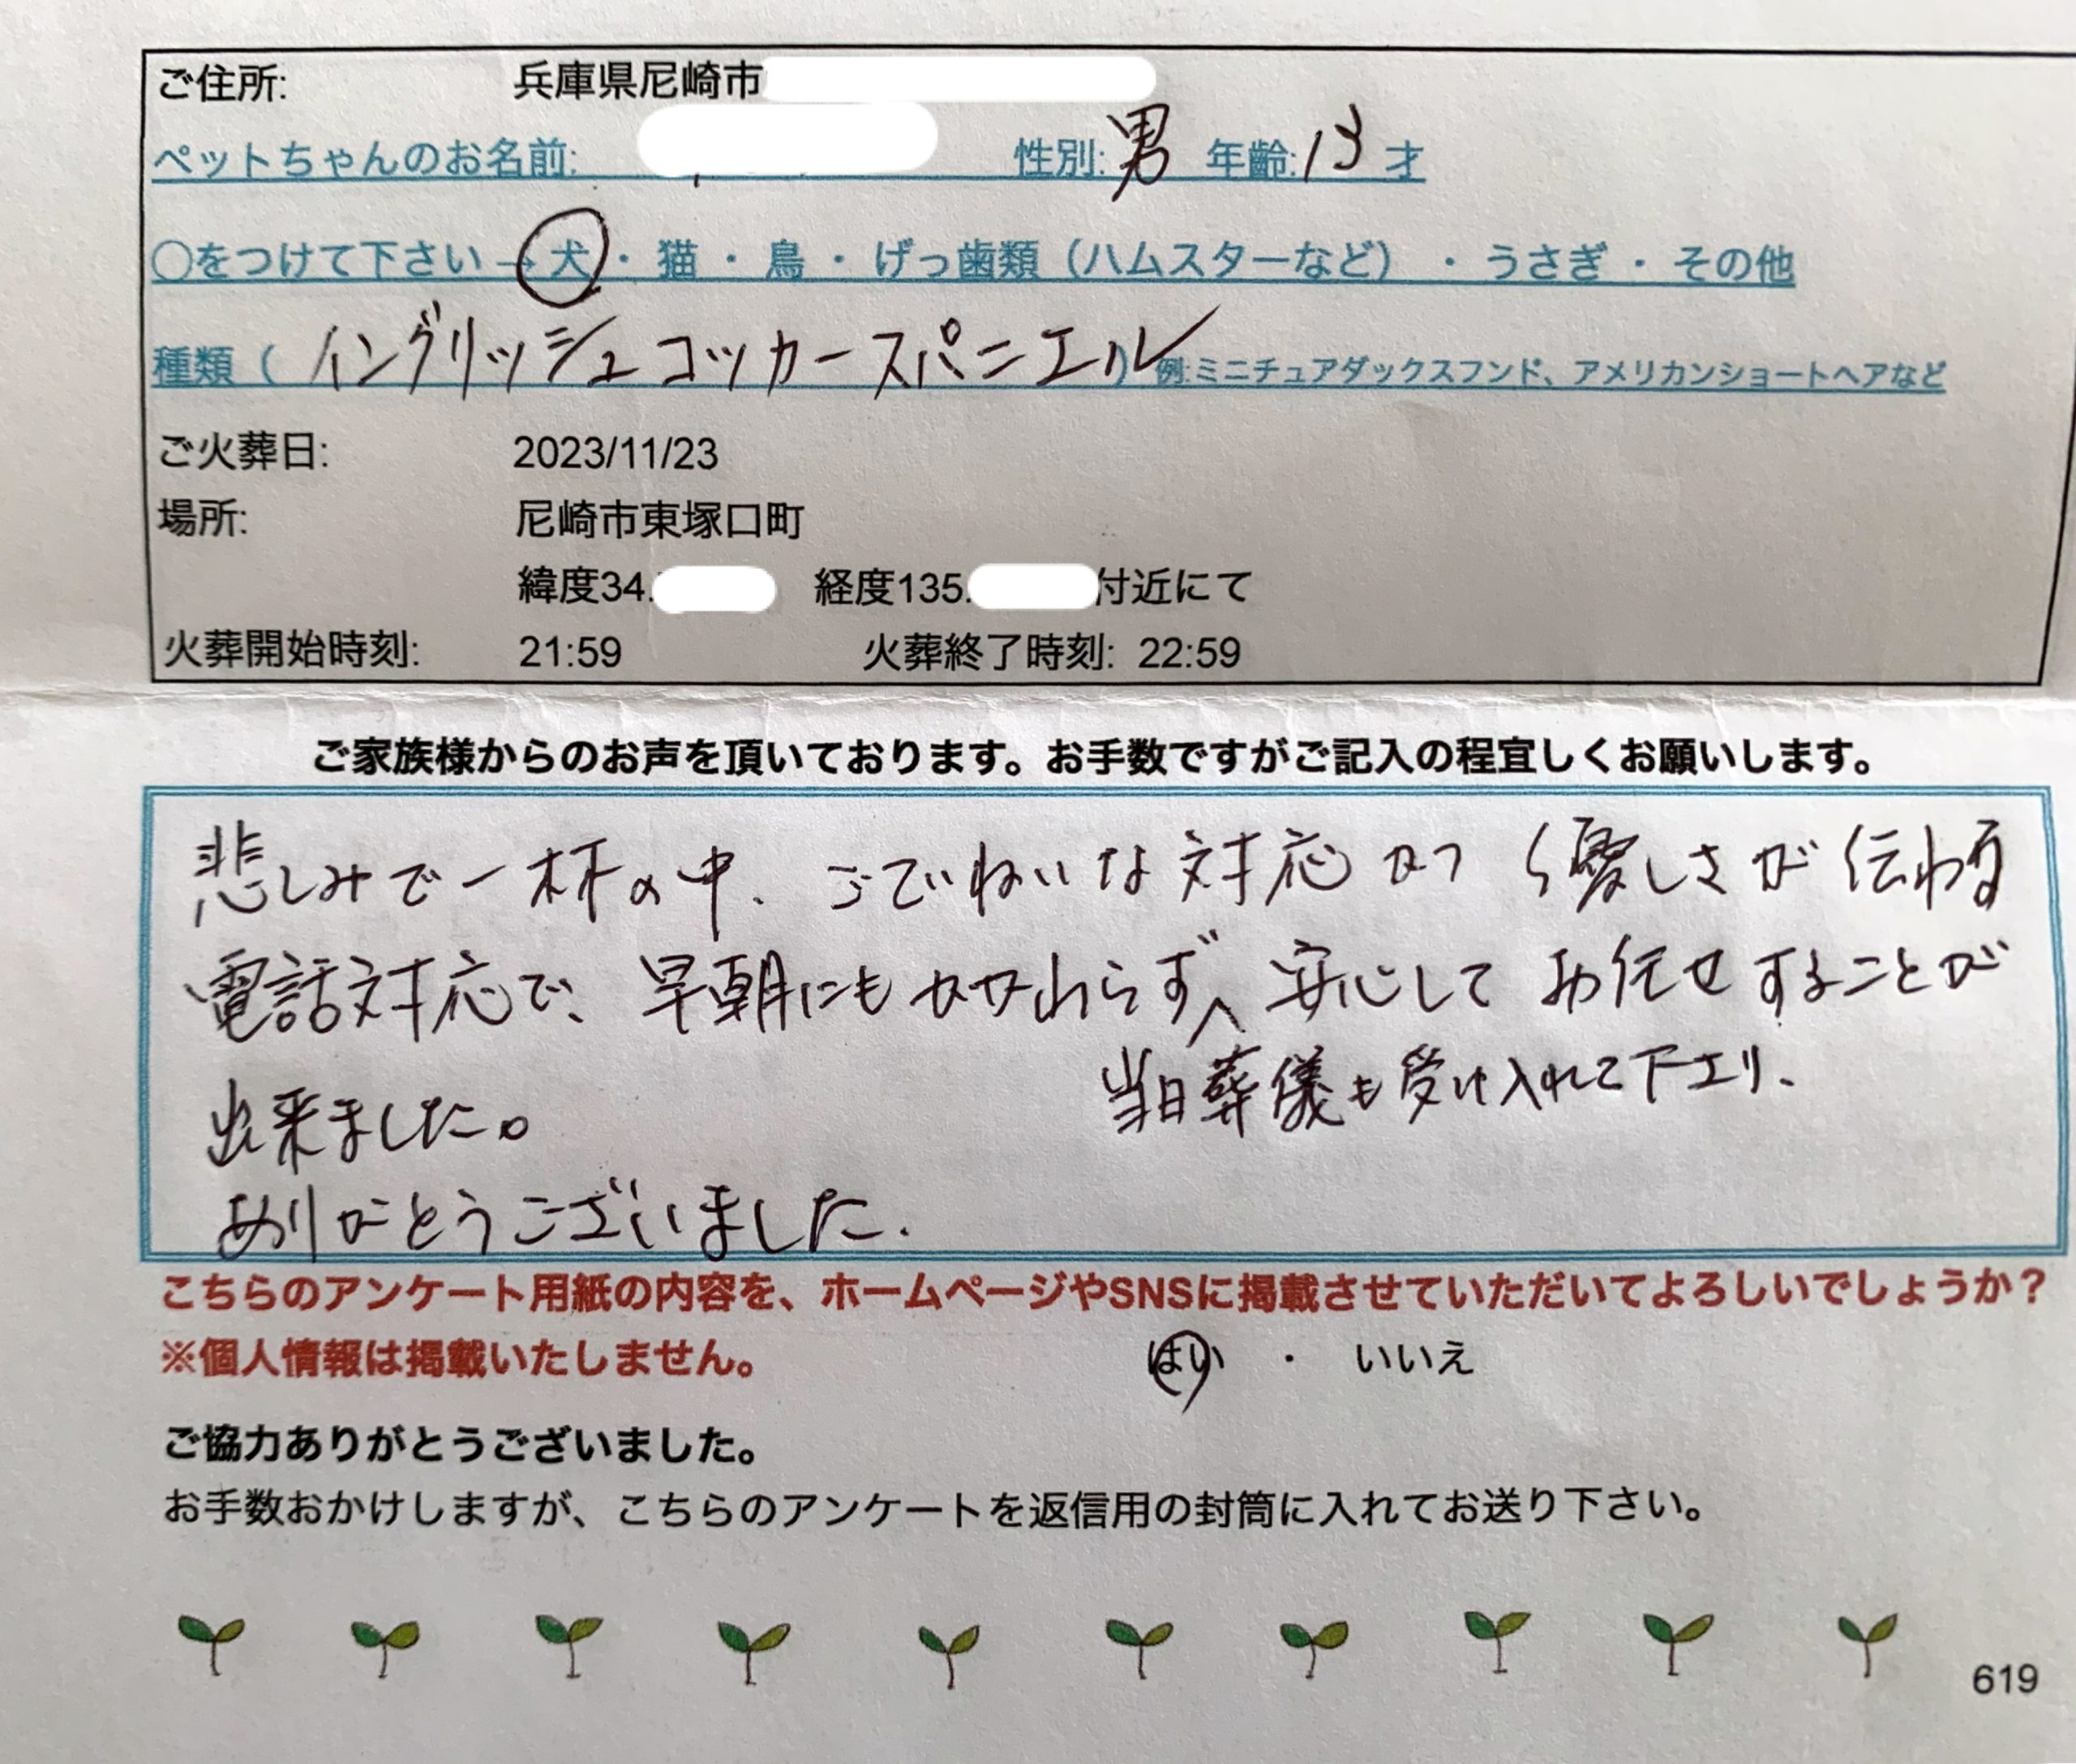 ご住所: 兵庫県尼崎市
ペットちゃんのお名前: 性別:男 年齢:13才
○をつけて下さい→犬・猫・鳥・げっ歯類（ハムスターなど）・うさぎ・その他
種類（イングリッシュコッカースパニエル）例:ミニチュアダックスフンド、アメリカンショートヘアなど
ご火葬日: 2023/11/23
場所: 尼崎市東塚口町
緯度34. 経度135. 付近にて
火葬開始時刻: 21:59 火葬終了時刻: 22:59
ご家族様からのお声を頂いております。お手数ですがご記入の程宜しくお願いします。
悲しみで一杯の中、ごていねいな対応かつ優しさが伝わる
電話対応で、早朝にもかかわらず、安心してお任せすることが
当日葬儀も受け入れて下さり、
出来ました。
ありがとうございました。
こちらのアンケート用紙の内容を、ホームページやSNSに掲載させていただいてよろしいでしょうか？
※個人情報は掲載いたしません。 はい ・ いいえ
ご協力ありがとうございました。
お手数おかけしますが、こちらのアンケートを返信用の封筒に入れてお送り下さい。
619